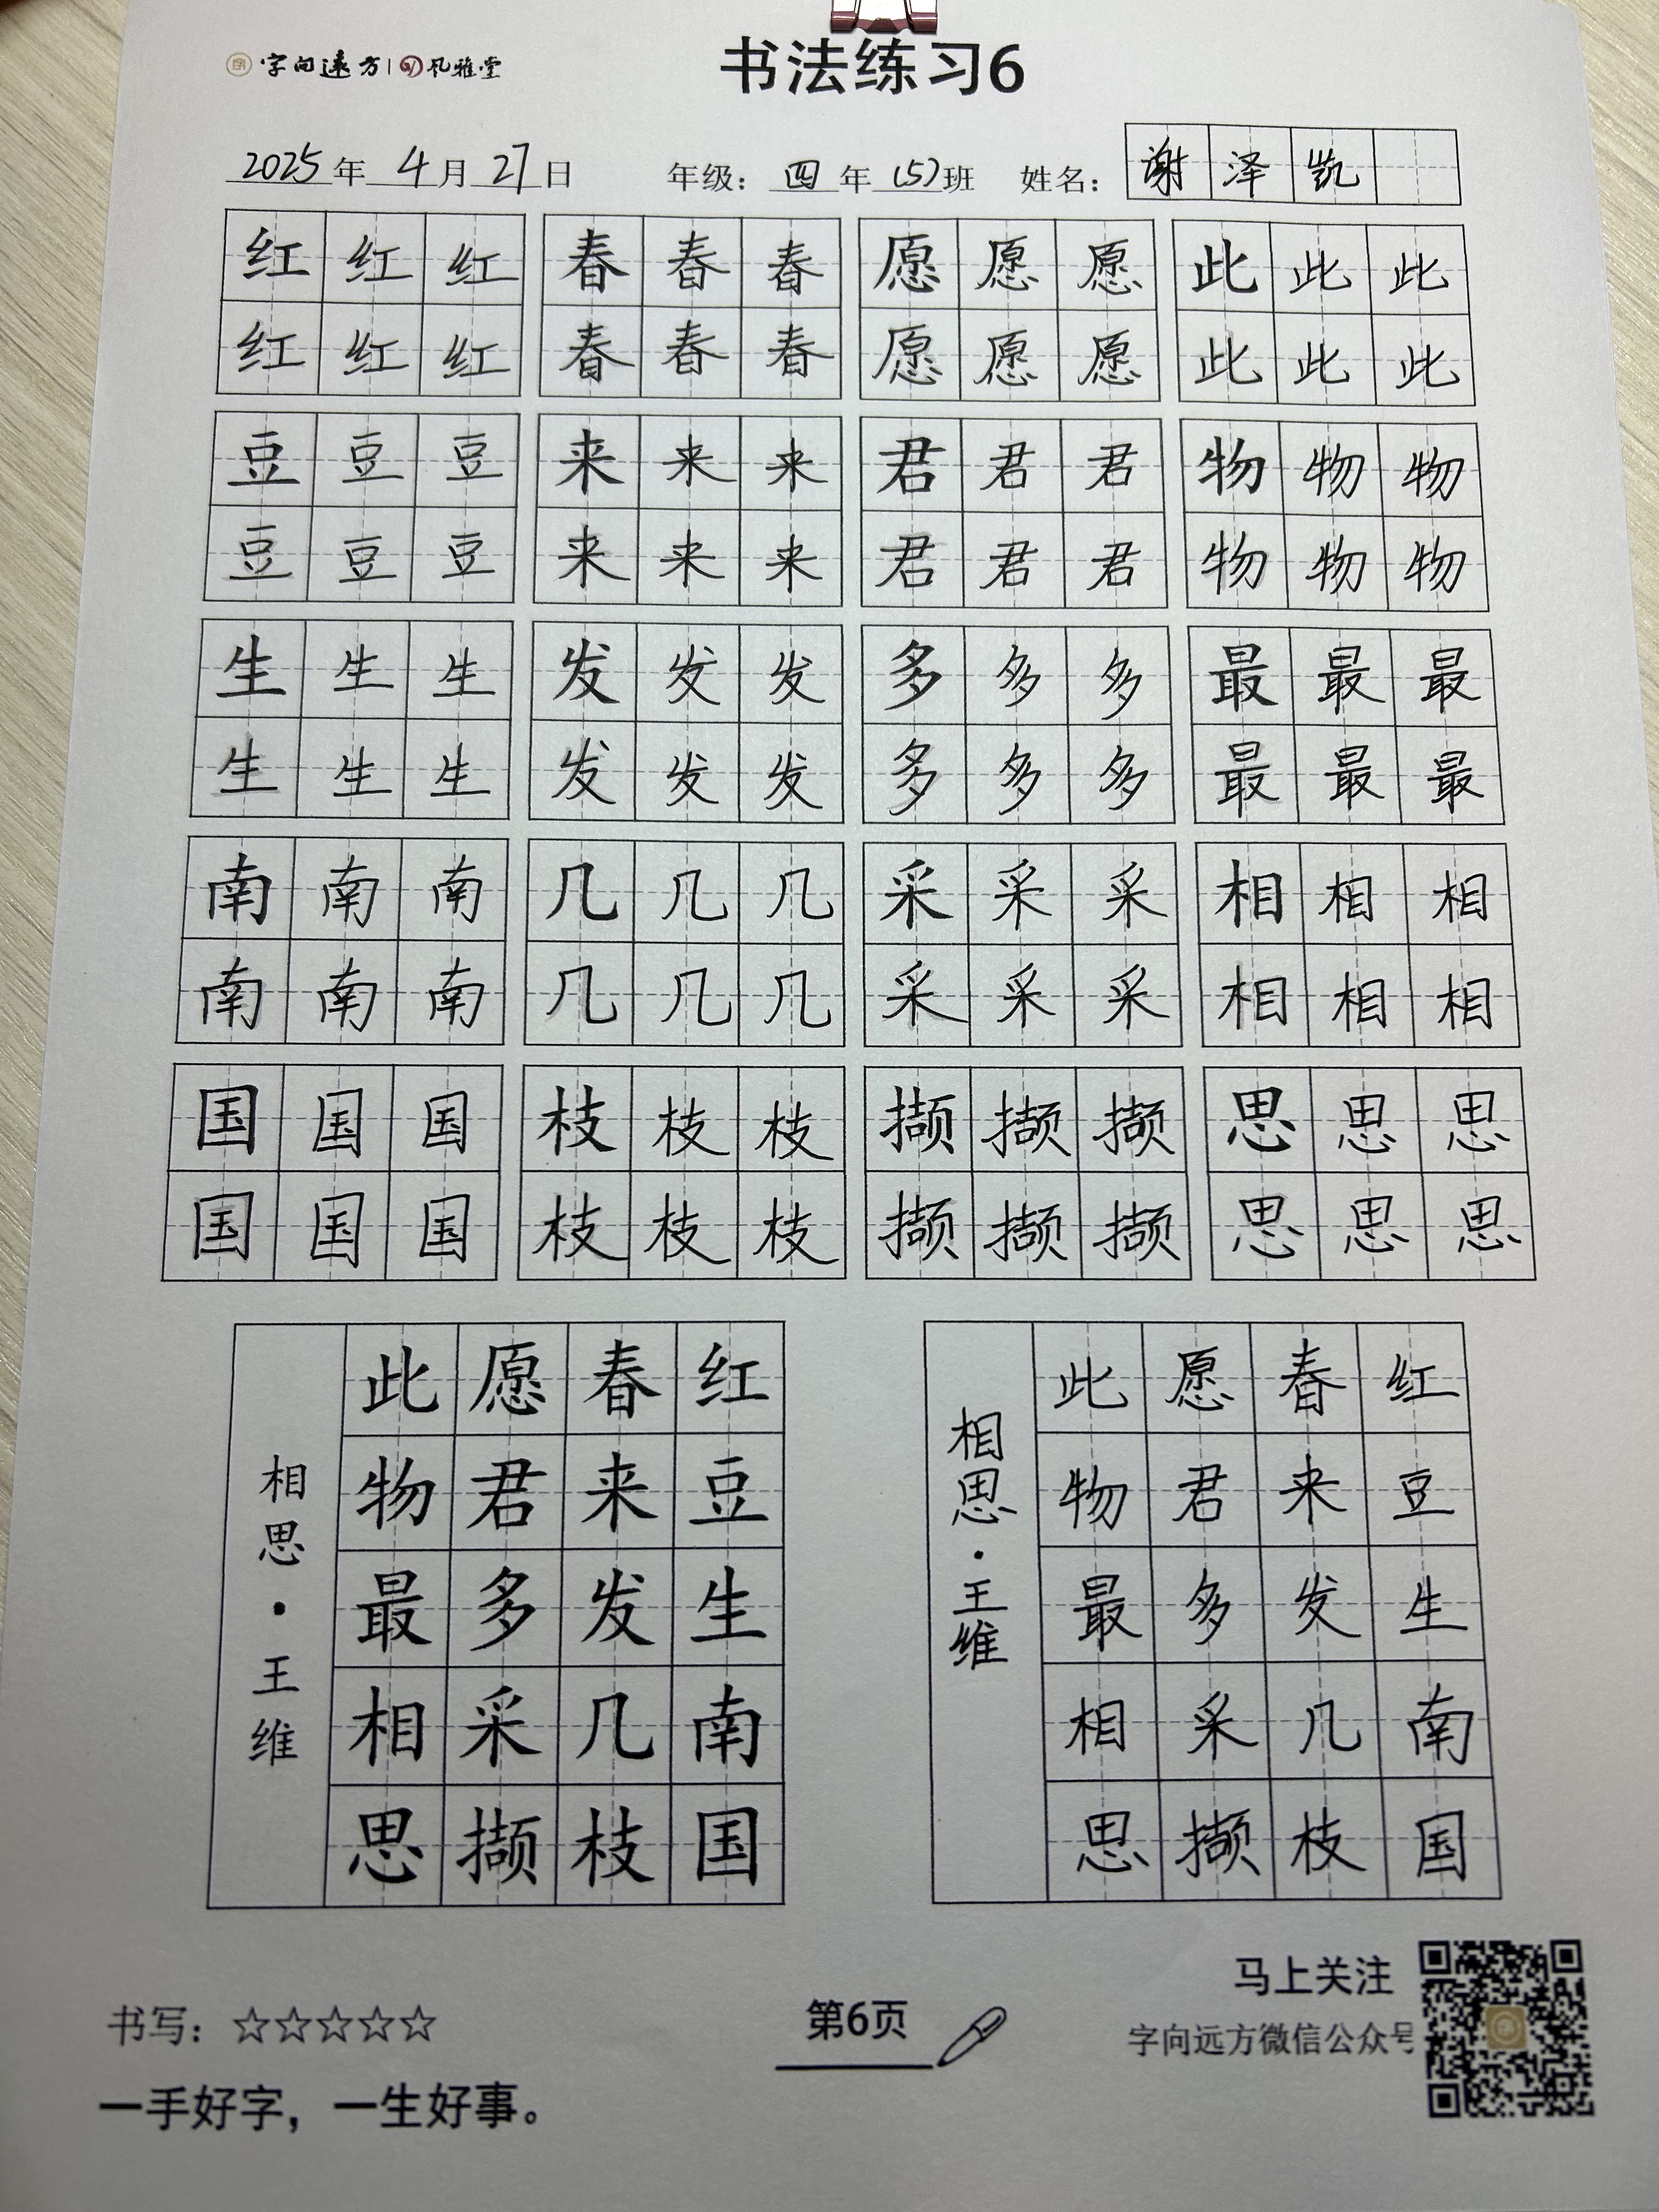 字向远方 风雅堂
书法练习6
2025年4月27日 年级：四年(5)班 姓名：谢泽凯
红红红 春春春 愿愿愿 此此此
红红红 春春春 愿愿愿 此此此
豆豆豆 来来来 君君君 物物物
豆豆豆 来来来 君君君 物物物
生生生 发发发 多多多 最最最
生生生 发发发 多多多 最最最
南南南 几几几 采采采 相相相
南南南 几几几 采采采 相相相
国国国 枝枝枝 撷撷撷 思思思
国国国 枝枝枝 撷撷撷 思思思
红豆生南国
春来发几枝
愿君多采撷
此物最相思
相思·王维
红豆生南国
春来发几枝
愿君多采撷
此物最相思
相思·王维
书写：☆☆☆☆☆
一手好字，一生好事。
第6页
马上关注
字向远方微信公众号